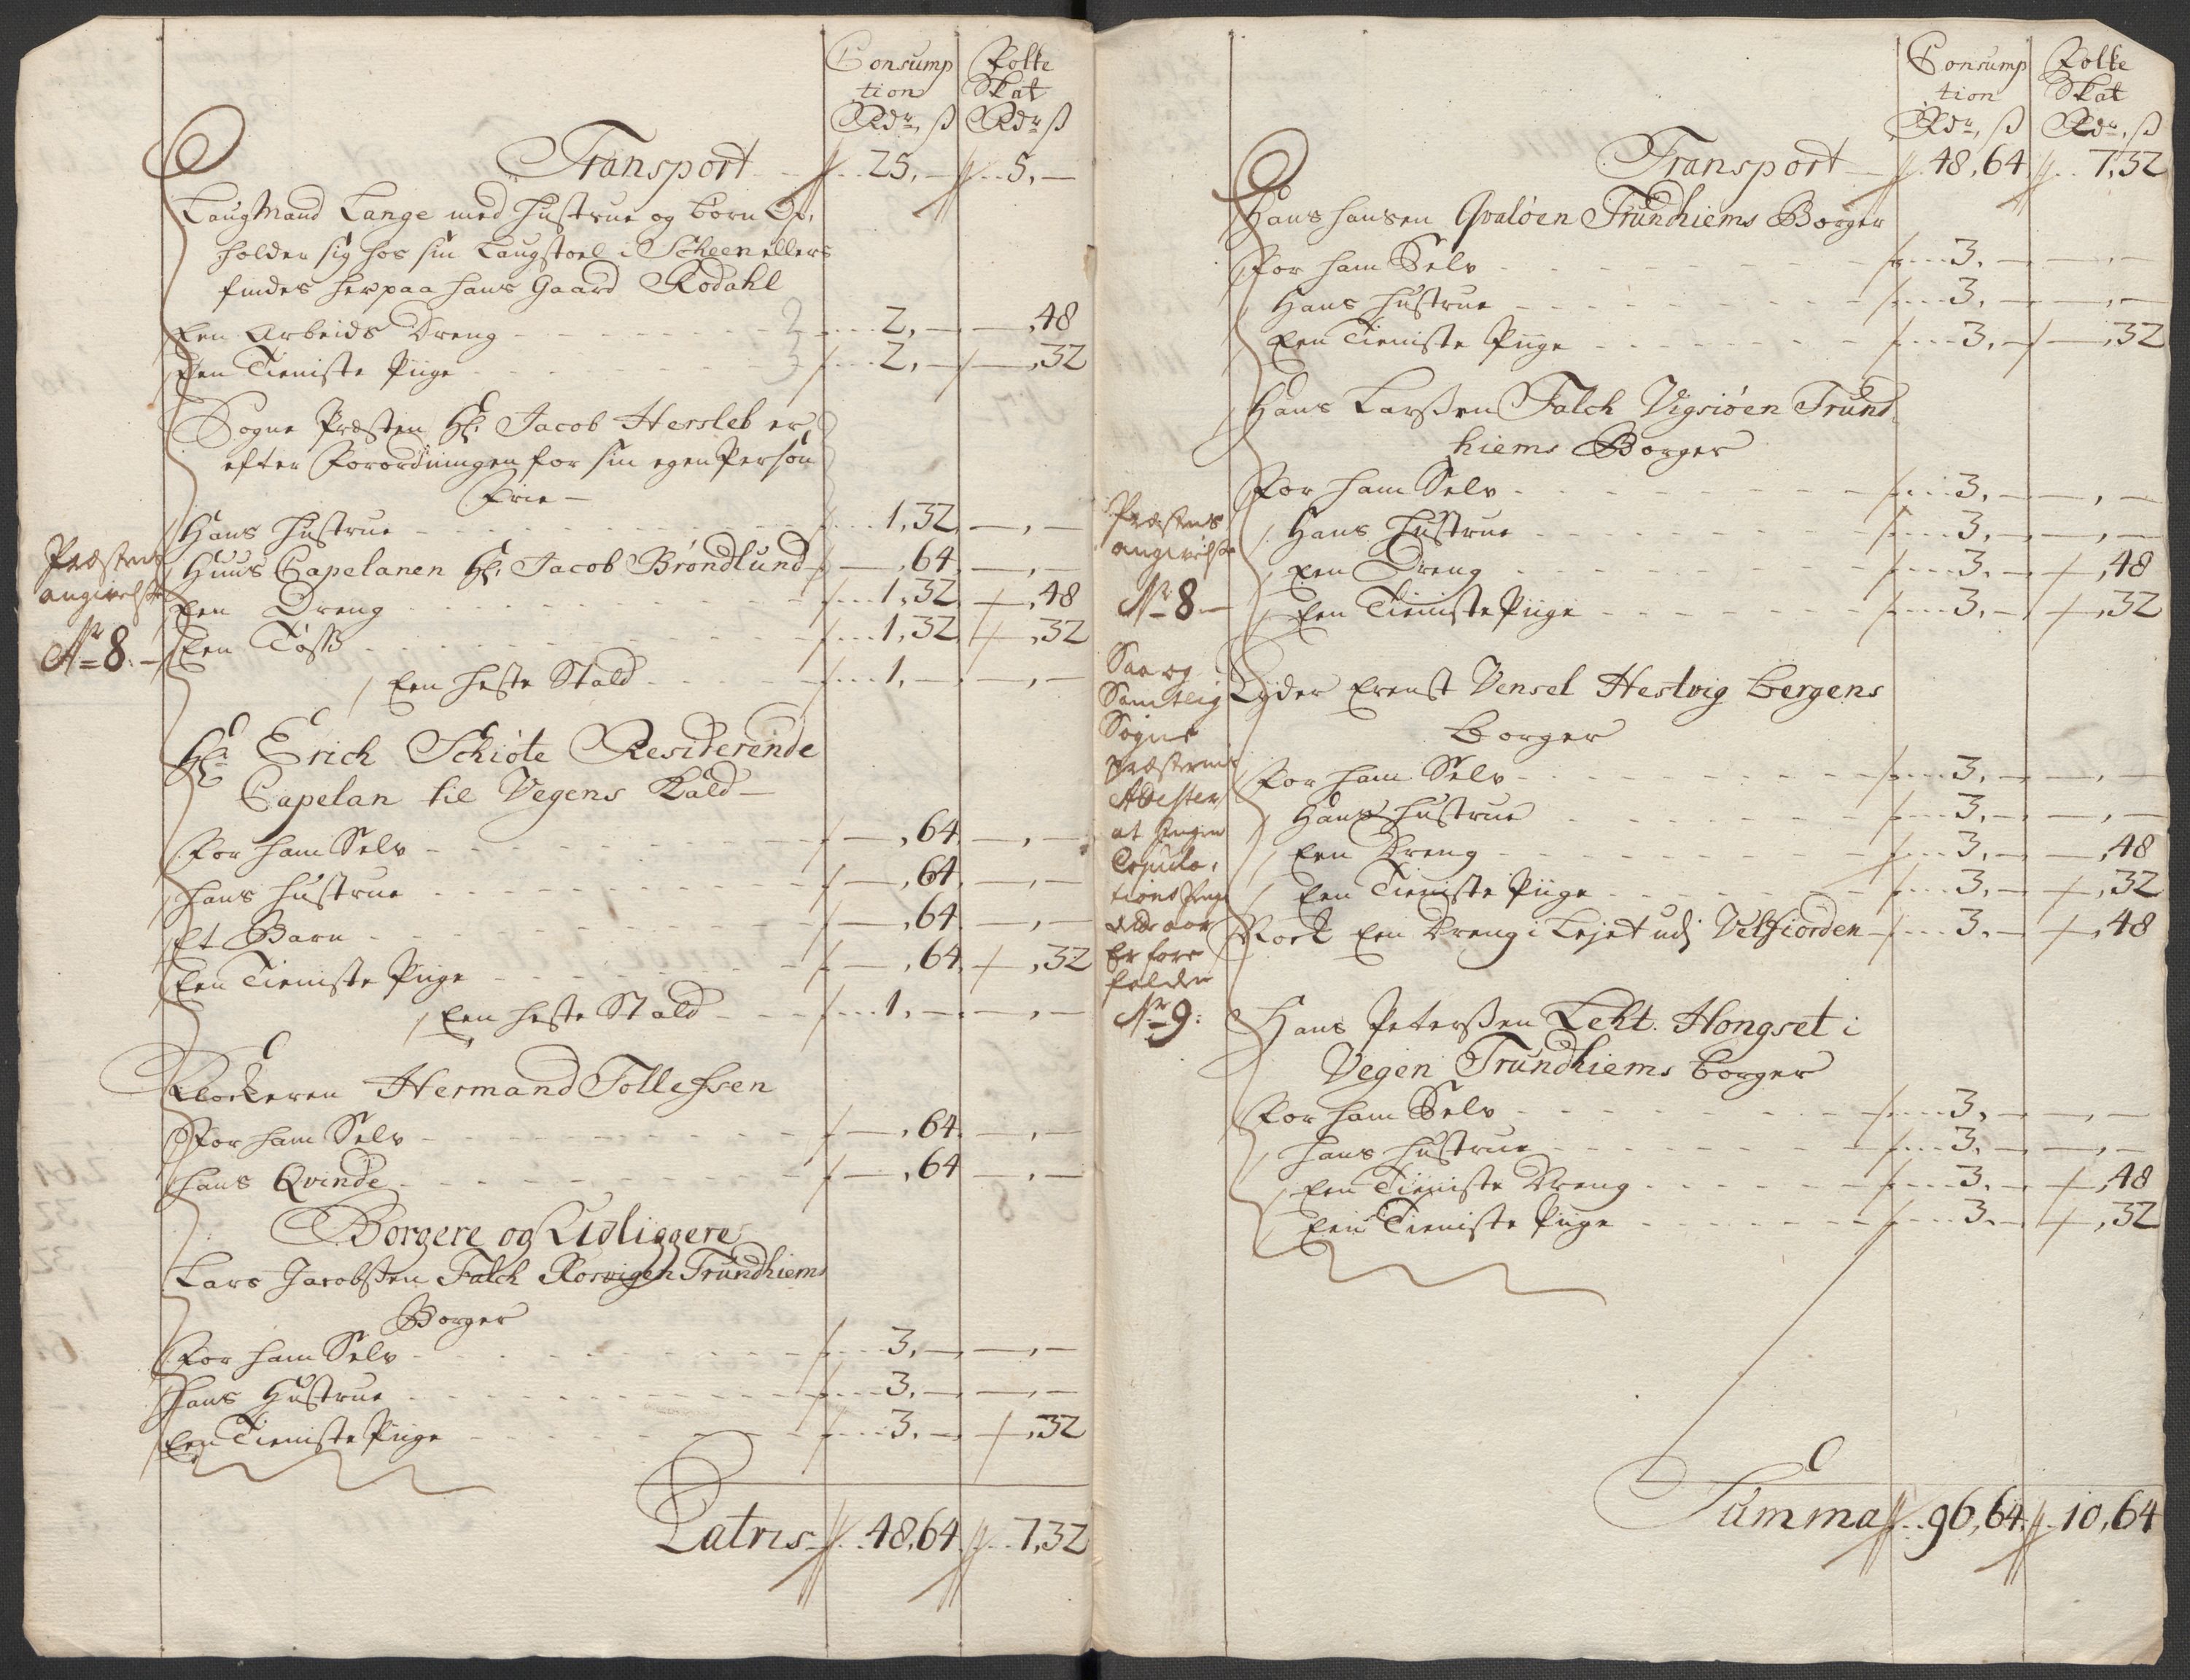 Consump Folke
tion Skat
Rdr, ß Rdr ß
Transport 25,— 5,—
Laugmand Lange med Hustrue og børn Op,
holder sig hos sin Laugstoel i Scheen ellers
findes her paa hans Gaard Rødahl
Een Arbeids Dreng 2,— —,48
Een Tieniste Piige 2,— —,32
Sogne Præsten Hr. Jacob Hersleb er
efter Forordningen for sin egen Person
Frie —
Hans Hustrue 1,32 —,—
Præstens
angivelse
No 8.—
Huus Capelanen Hr. Jacob Brøndlund —,64 —,—
Een Dreng 1,32 —,48
Een Tøss 1,32 —,32
Een Heste Stald 1,— —,—
Hr. Erich Schiøte Residerende
Capelan til Vegens Kald —
For ham Selv —,64 —,—
Hans Hustrue —,64 —,—
Et Barn —,64 —,—
Een Tieniste Piige —,64 —,32
Een Heste Stald 1,— —,—
Klockeren Hermand Tollefsen
For ham Selv —,64 —,—
Hans Qvinde —,64 —,—
Borgere og Udliggere
Lars Jacobsen Falch Rørvigen Trundhiems
Borger
For ham Selv 3,— —,—
Hans Hustrue 3,— —,—
Een Tieniste Piige 3,— —,32
Latris 48,64 7,32
Consump Folke
tion Skat
Rdr, ß Rdr, ß
Transport 48,64 7,32
Hans Hansen Qvaløen Trundhiems Borger
For ham Selv 3,— —,—
Hans Hustrue 3,— —,—
Een Tieniste Piige 3,— —,32
Hans Larsen Falch Vigsiøen Trund
hiems Borger
For ham Selv 3,— —,—
Præstens
angivelse
No 8.—
Hans Hustrue 3,— —,—
Een Dreng 3,— —,48
Een Tieniste Piige 3,— —,32
Saa og
Samtlig
Sogne
præsternis
Attester
at Ingen
tions
dette aar
Er fore
falden
No 9:
Lyder Ernst Vensel Hestvig Bergens
Borger
For ham Selv 3,— —,—
Hans Hustrue 3,— —,—
Een Dreng 3,— —,48
Een Tieniste Piige 3,— —,32
Nock Een Dreng i Lejet udj Velfiorden 3,— —,48
Hans Petersen Leht. Hongset i
Vegen Trundhiems Borger
For ham Selv 3,— —,—
Hans Hustrue 3,— —,—
Een Tieniste Dreng 3,— —,48
Een Tieniste Piige 3,— —,32
Summa 96,64 10,64